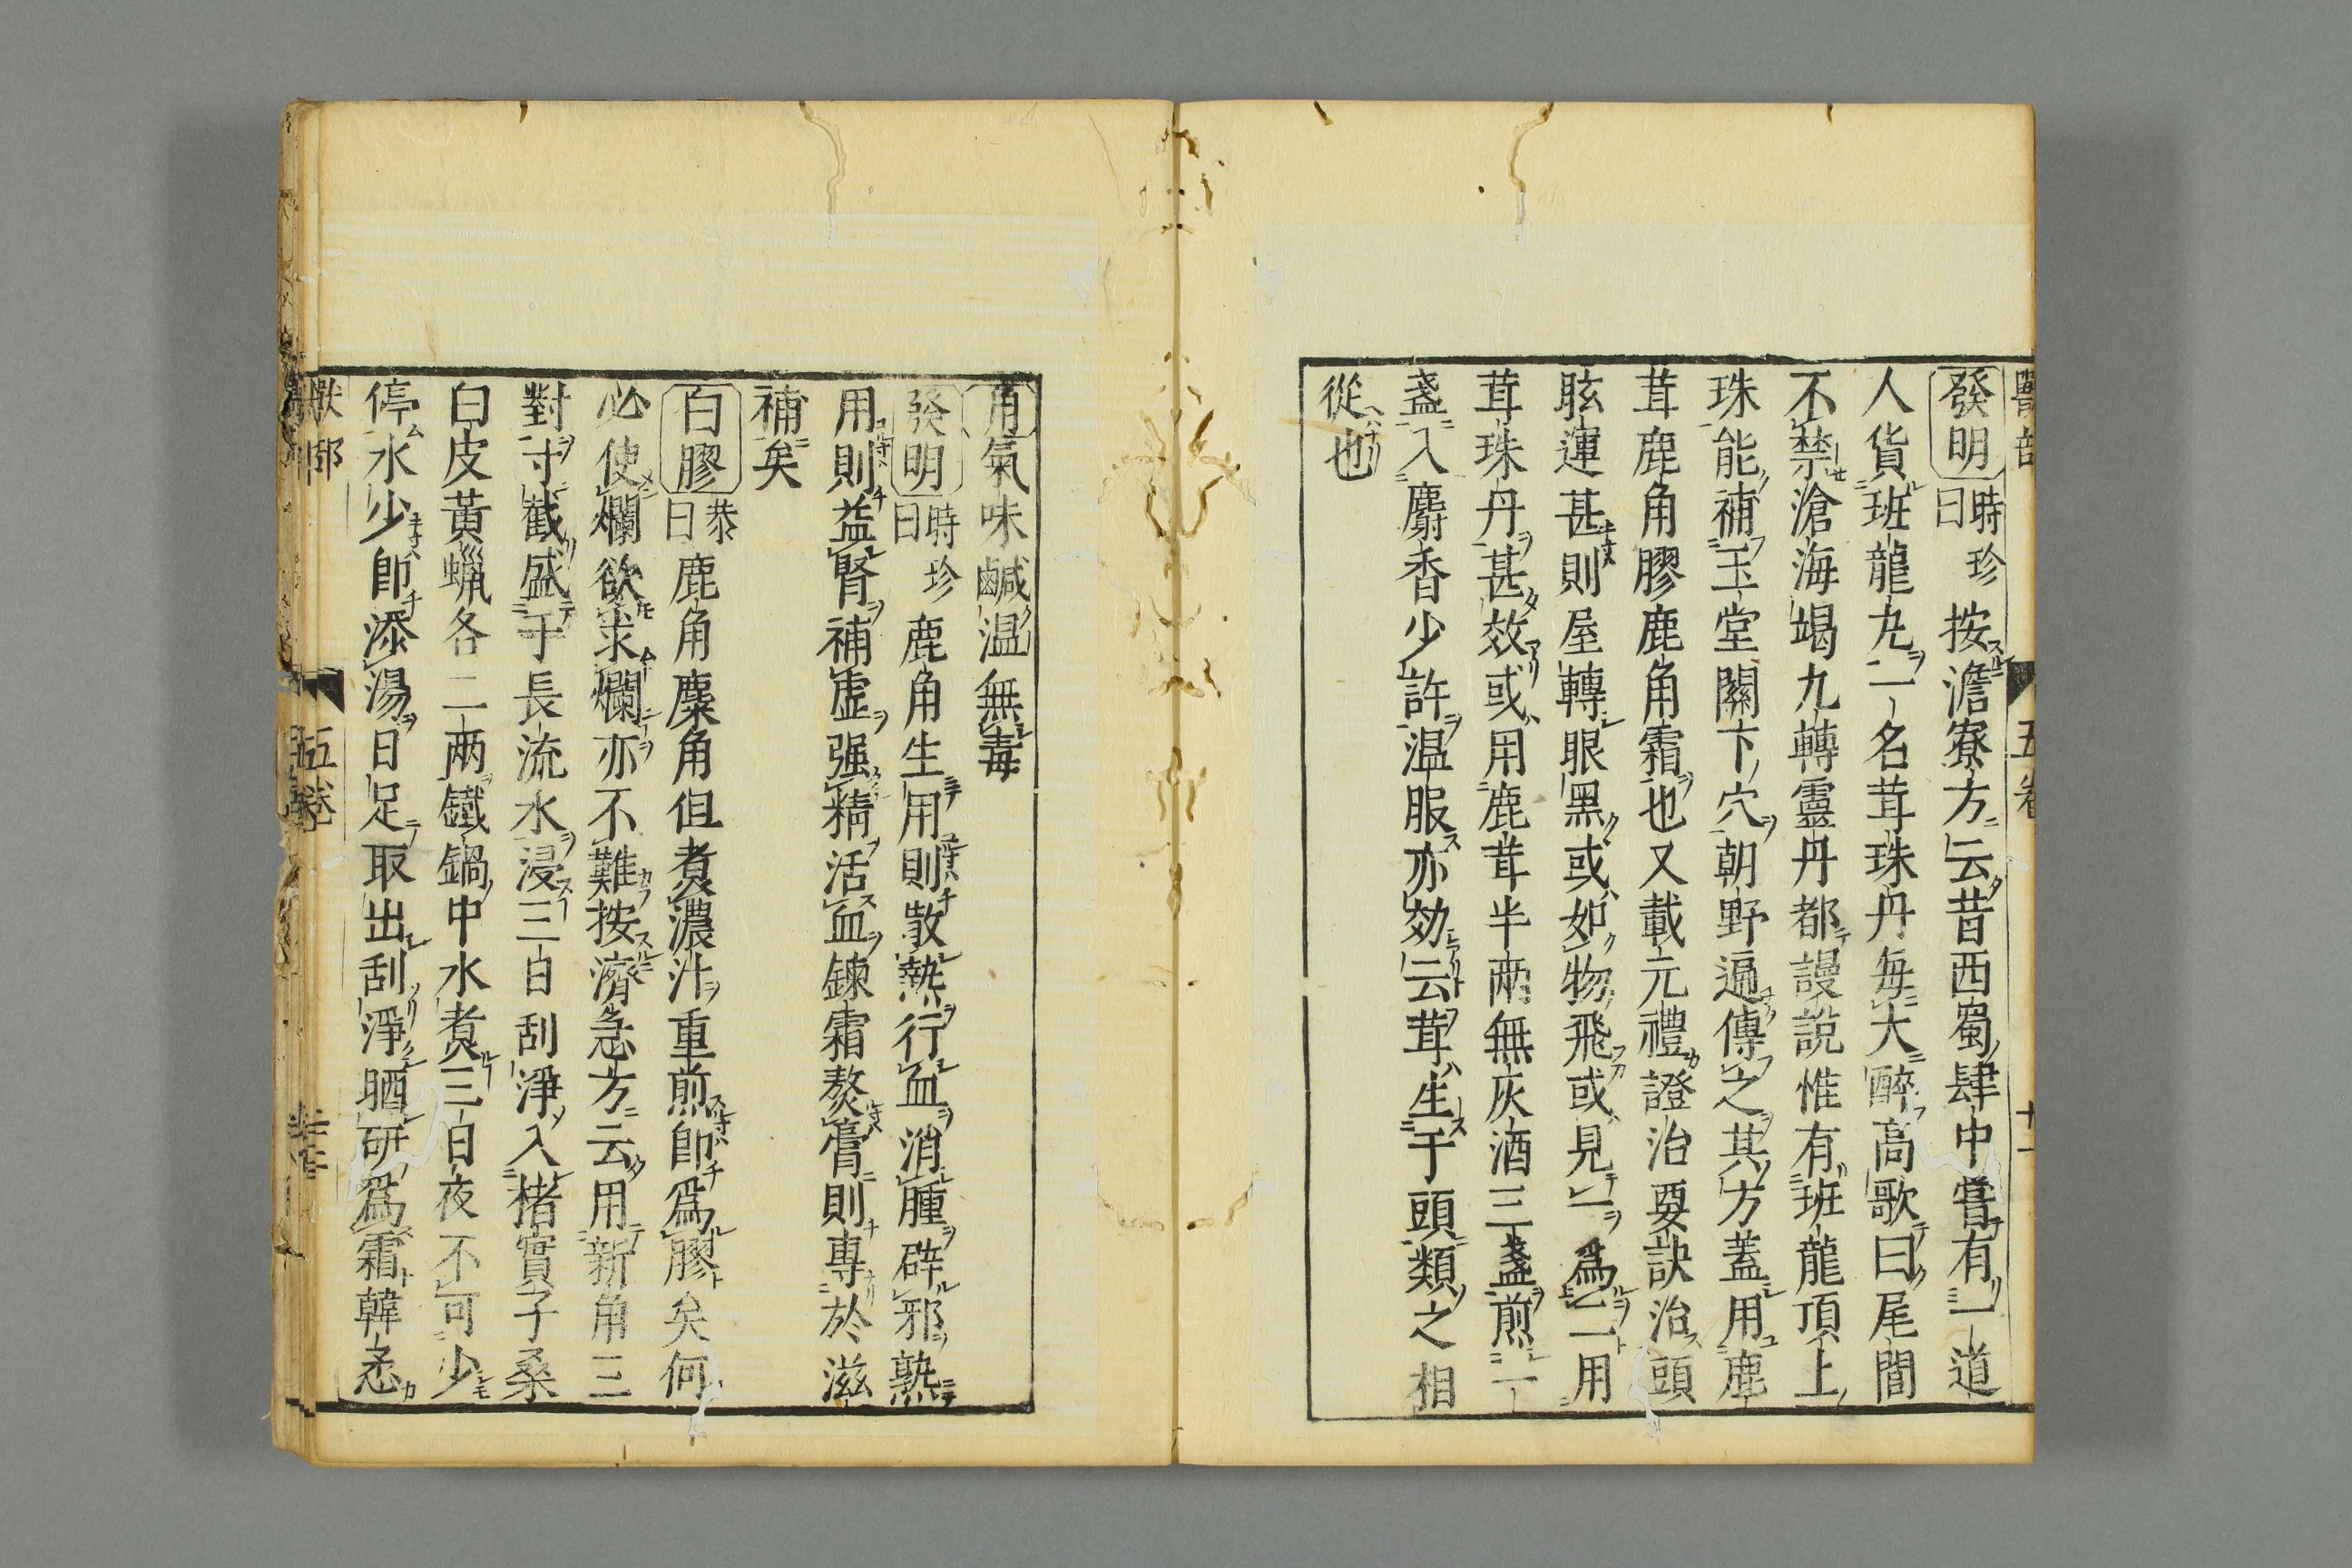 發明時珍曰按澹寮方云昔西蜀肆中嘗有一道
人貨班龍丸一名茸珠丹每大醉高歌曰尾閭
不禁滄海竭九轉靈丹都謾說惟有班龍頂上
珠能補玉堂關下穴朝野遍傳之其方蓋用鹿
茸鹿角膠鹿角霜也又載元禮證治要訣治頭
眩運甚則屋轉眼黑或如物飛或見一爲二用
茸珠丹甚效或用鹿茸半兩無灰酒三盞煎一
盞入麝香少許温服亦効云茸生于頭類之相
從也
角氣味鹹温無毒
發明時珍曰鹿角生用則散熱行血消腫辟邪熟
用則益腎補虛强精活血鍊霜熬膏則專於滋
補矣
白膠恭曰鹿角麋角但煮濃汁重煎卽爲膠矣何
必使爛欲求爛亦不難按濟急方云用新角三
對寸截盛于長流水浸三日刮淨入楮實子桑
白皮黃蝋各二兩鐵鍋中水煮三日夜不可少
停水少卽添湯日足取出刮淨晒研爲霜韓悉
獸部 五卷